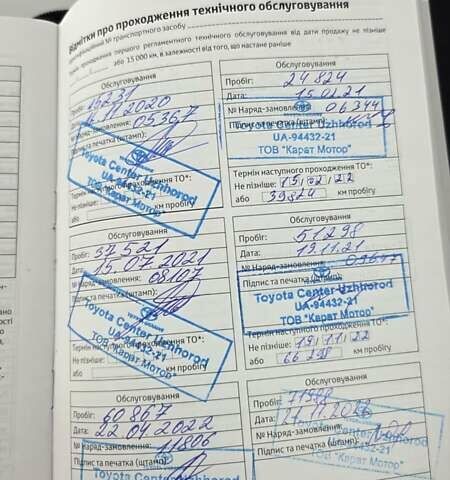 Відмітки про проходження технічного обслуговування
Ідентифікаційний № транспортного засобу
Термін проходження першого регламентного технічного обслуговування від дати продажу не пізніше
або 15 000 км, в залежності від того, що настане раніше
Обслуговування
Пробіг: 15231
Дата: 11.2020
№ Наряд-замовлення: 05367
Підпис та печатка (штамп):
Toyota Center Uzhhorod
UA-94432-21
ТОВ "Карат Мотор"
Термін наступного проходження ТО*:
Не пізніше:
або км пробігу
Обслуговування
Пробіг: 24824
Дата: 15.01.21
№ Наряд-замовлення: 06344
Підпис та печатка (штамп):
Toyota Center Uzhhorod
UA-94432-21
ТОВ "Карат Мотор"
Термін наступного проходження ТО*:
Не пізніше: 15.02.22
або 39824 км пробігу
Обслуговування
Пробіг: 37521
Дата: 15.07.2021
№ Наряд-замовлення: 08107
Підпис та печатка (штамп):
Toyota Center Uzhhorod
UA-94432-21
ТОВ "Карат Мотор"
Термін наступного проходження ТО*:
Не пізніше:
або км пробігу
Обслуговування
Пробіг: 51298
Дата: 19.11.21
№ Наряд-замовлення: 09647
Підпис та печатка (штамп):
Toyota Center Uzhhorod
UA-94432-21
ТОВ "Карат Мотор"
Термін наступного проходження ТО*:
Не пізніше: 19.11.22
або 66298 км пробігу
Обслуговування
Пробіг: 60867
Дата: 22.04.2022
№ Наряд-замовлення: 11806
Підпис та печатка (штамп):
Toyota Center Uzhhorod
Обслуговування
Пробіг:
Дата: 21.11.2022
№ Наряд-замовлення:
Підпис та печатка (штамп):
Toyota Center Uzhhorod
UA-94432-21
ТОВ "Карат Мотор"